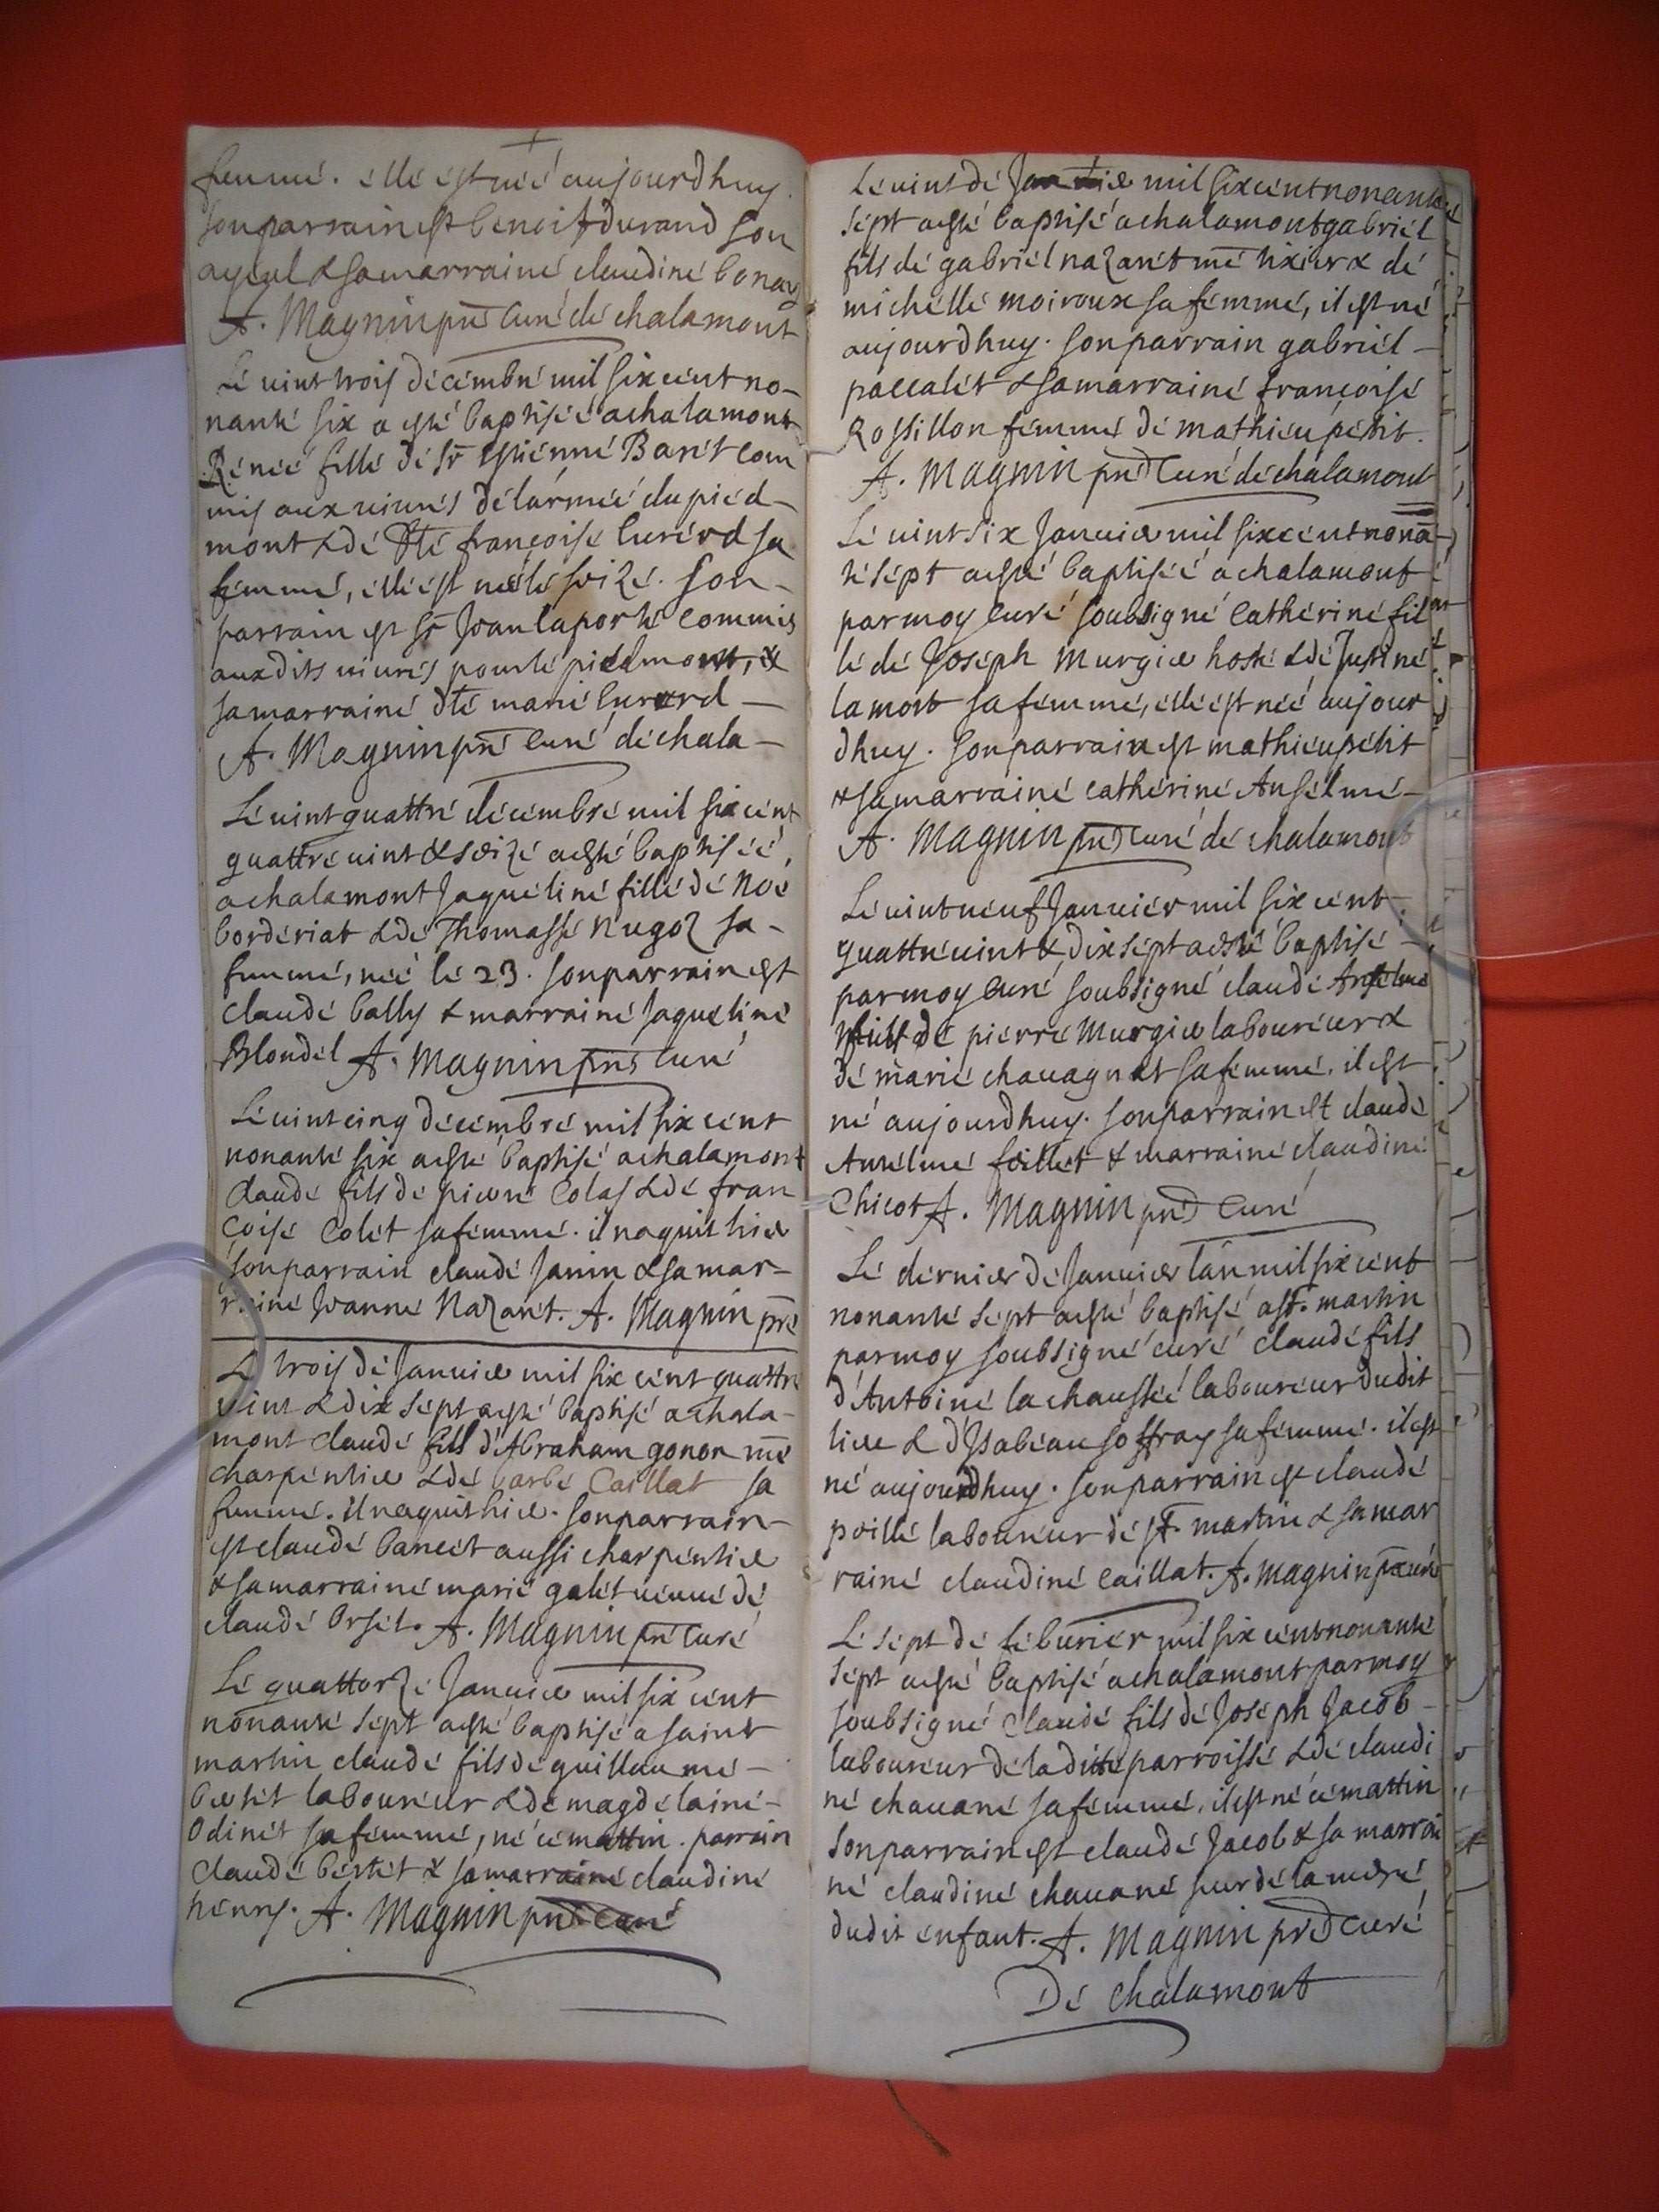 femme. elle est neé aujourdhuy.
son parrain est benoist durand son
ayeul & sa marraine claudine bonay
A. Magnin pre Curé de chalamont
Le vint trois decembre mil six cent no-
nante six a esté baptiseé a chalamont
Reneé fille de Sr Estienne Baret com
mis aux vivres de larmeé du pied-
mont & de dlle françoise Curerd sa
femme, elle est neé le seize. son-
parrain est Sr Jean laporte Commis
auxdits vivres pour le piedmont, &
sa marraine dlle marie Curerd-
A. Magnin pre Curé de chala-
Le vint quattre decembre mil six cent
quattre vint & seize a esté baptiseé,
a chalamont Jaqueline fille de Noe
borderiat & de Thomasse Nugoz sa-
femme, neé le 23. son parrain est
claude bally & marraine Jaqueline
Blondel A. Magnin pre Curé
Le vint cinq decembre mil six cent
nonante six a esté baptisé a chalamont
claude fils de pierre Colas & de fran
çoise Colet sa femme. il naquit hier
son parrain claude Janin & sa mar-
raine Jeanne Nazaret. A. Magnin pre
Le trois de Janvier mil six cent quattre
vint & dix sept a esté baptisé a chala-
mont claude fils d'Abraham gonon me
charpentier & de barbe Caillat sa
femme. Il naquit hier. son parrain-
est claude bancet aussi charpentier
& sa marraine marie galet veuve de
claude Orset. A. Magnin pre Curé
Le quattorze Janvier mil six cent
nonante sept a esté baptisé a saint
martin claude fils de guillaume-
bertet laboureur & de magdelaine-
Odinet sa femme, né ce mattin. parrain
claude bertet & sa marraine claudine
henry. A. Magnin pre Curé
Le vint de Janvier mil six cent nonante
sept a esté baptisé a chalamont gabriel
fils de gabriel nazaret me tixier & de
michelle moiroux sa femme, il est né
aujourdhuy. son parrain gabriel-
paccalet & sa marraine françoise
Rossillon femme de mathieu petit.
A. Magnin pre Curé de chalamont
Le vint six Janvier mil six cent nonā-
te sept a esté baptiseé a chalamont
par moy curé soubsigné Catherine fil
le de Joseph Murgier hoste & de Justine
lamort sa femme, elle est neé aujour
dhuy. son parrain est mathieu petit
& sa marraine catherine Anselme-
A. Magnin pre curé de chalamont
Le vint neuf Janvier mil six cent-
quattre vint & dix sept a esté baptisé-
par moy curé soubsigné claude Anselme
fils de pierre Murgier laboureur &
de marie chavagnet sa femme. il est
né aujourdhuy. son parrain est claude
Anselme feillet & marraine claudine
Chicot A. Magnin pre Curé
Le dernier de Janvier lan mil six cent
nonante sept a esté baptisé a St. martin
par moy soubsigné curé claude fils
d'Antoine la chausseé laboureur dudit
lieu & d'Isabeau soffray sa femme. il est
né aujourdhuy. son parrain est claude
poille laboureur de St. martin & sa mar
raine claudine caillat. A. Magnin pre curé
Le sept de feburier mil six cent nonante
sept a esté baptisé a chalamont par moy
soubsigné claude fils de Joseph Jacob-
laboureur de la ditte parroisse & de claudi
ne chavane sa femme, il est né ce mattin
son parrain est claude Jacob & sa marrai
ne claudine chavane seur de la mere
dudit enfant. A. Magnin pre curé
De chalamont